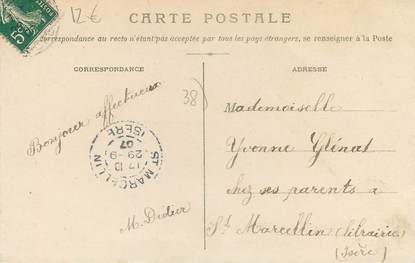 12€
CARTE POSTALE
La correspondance au recto n'étant pas acceptée par tous les pays étrangers, se renseigner à la Poste
CORRESPONDANCE
ADRESSE
38)
Bonjour affectueux
M. Didier
ST MARCELLIN
17 13
29-9
07
ISERE
Mademoiselle
Yvonne Glénat
chez ses parents à
St Marcellin (librairie)
(Isère)